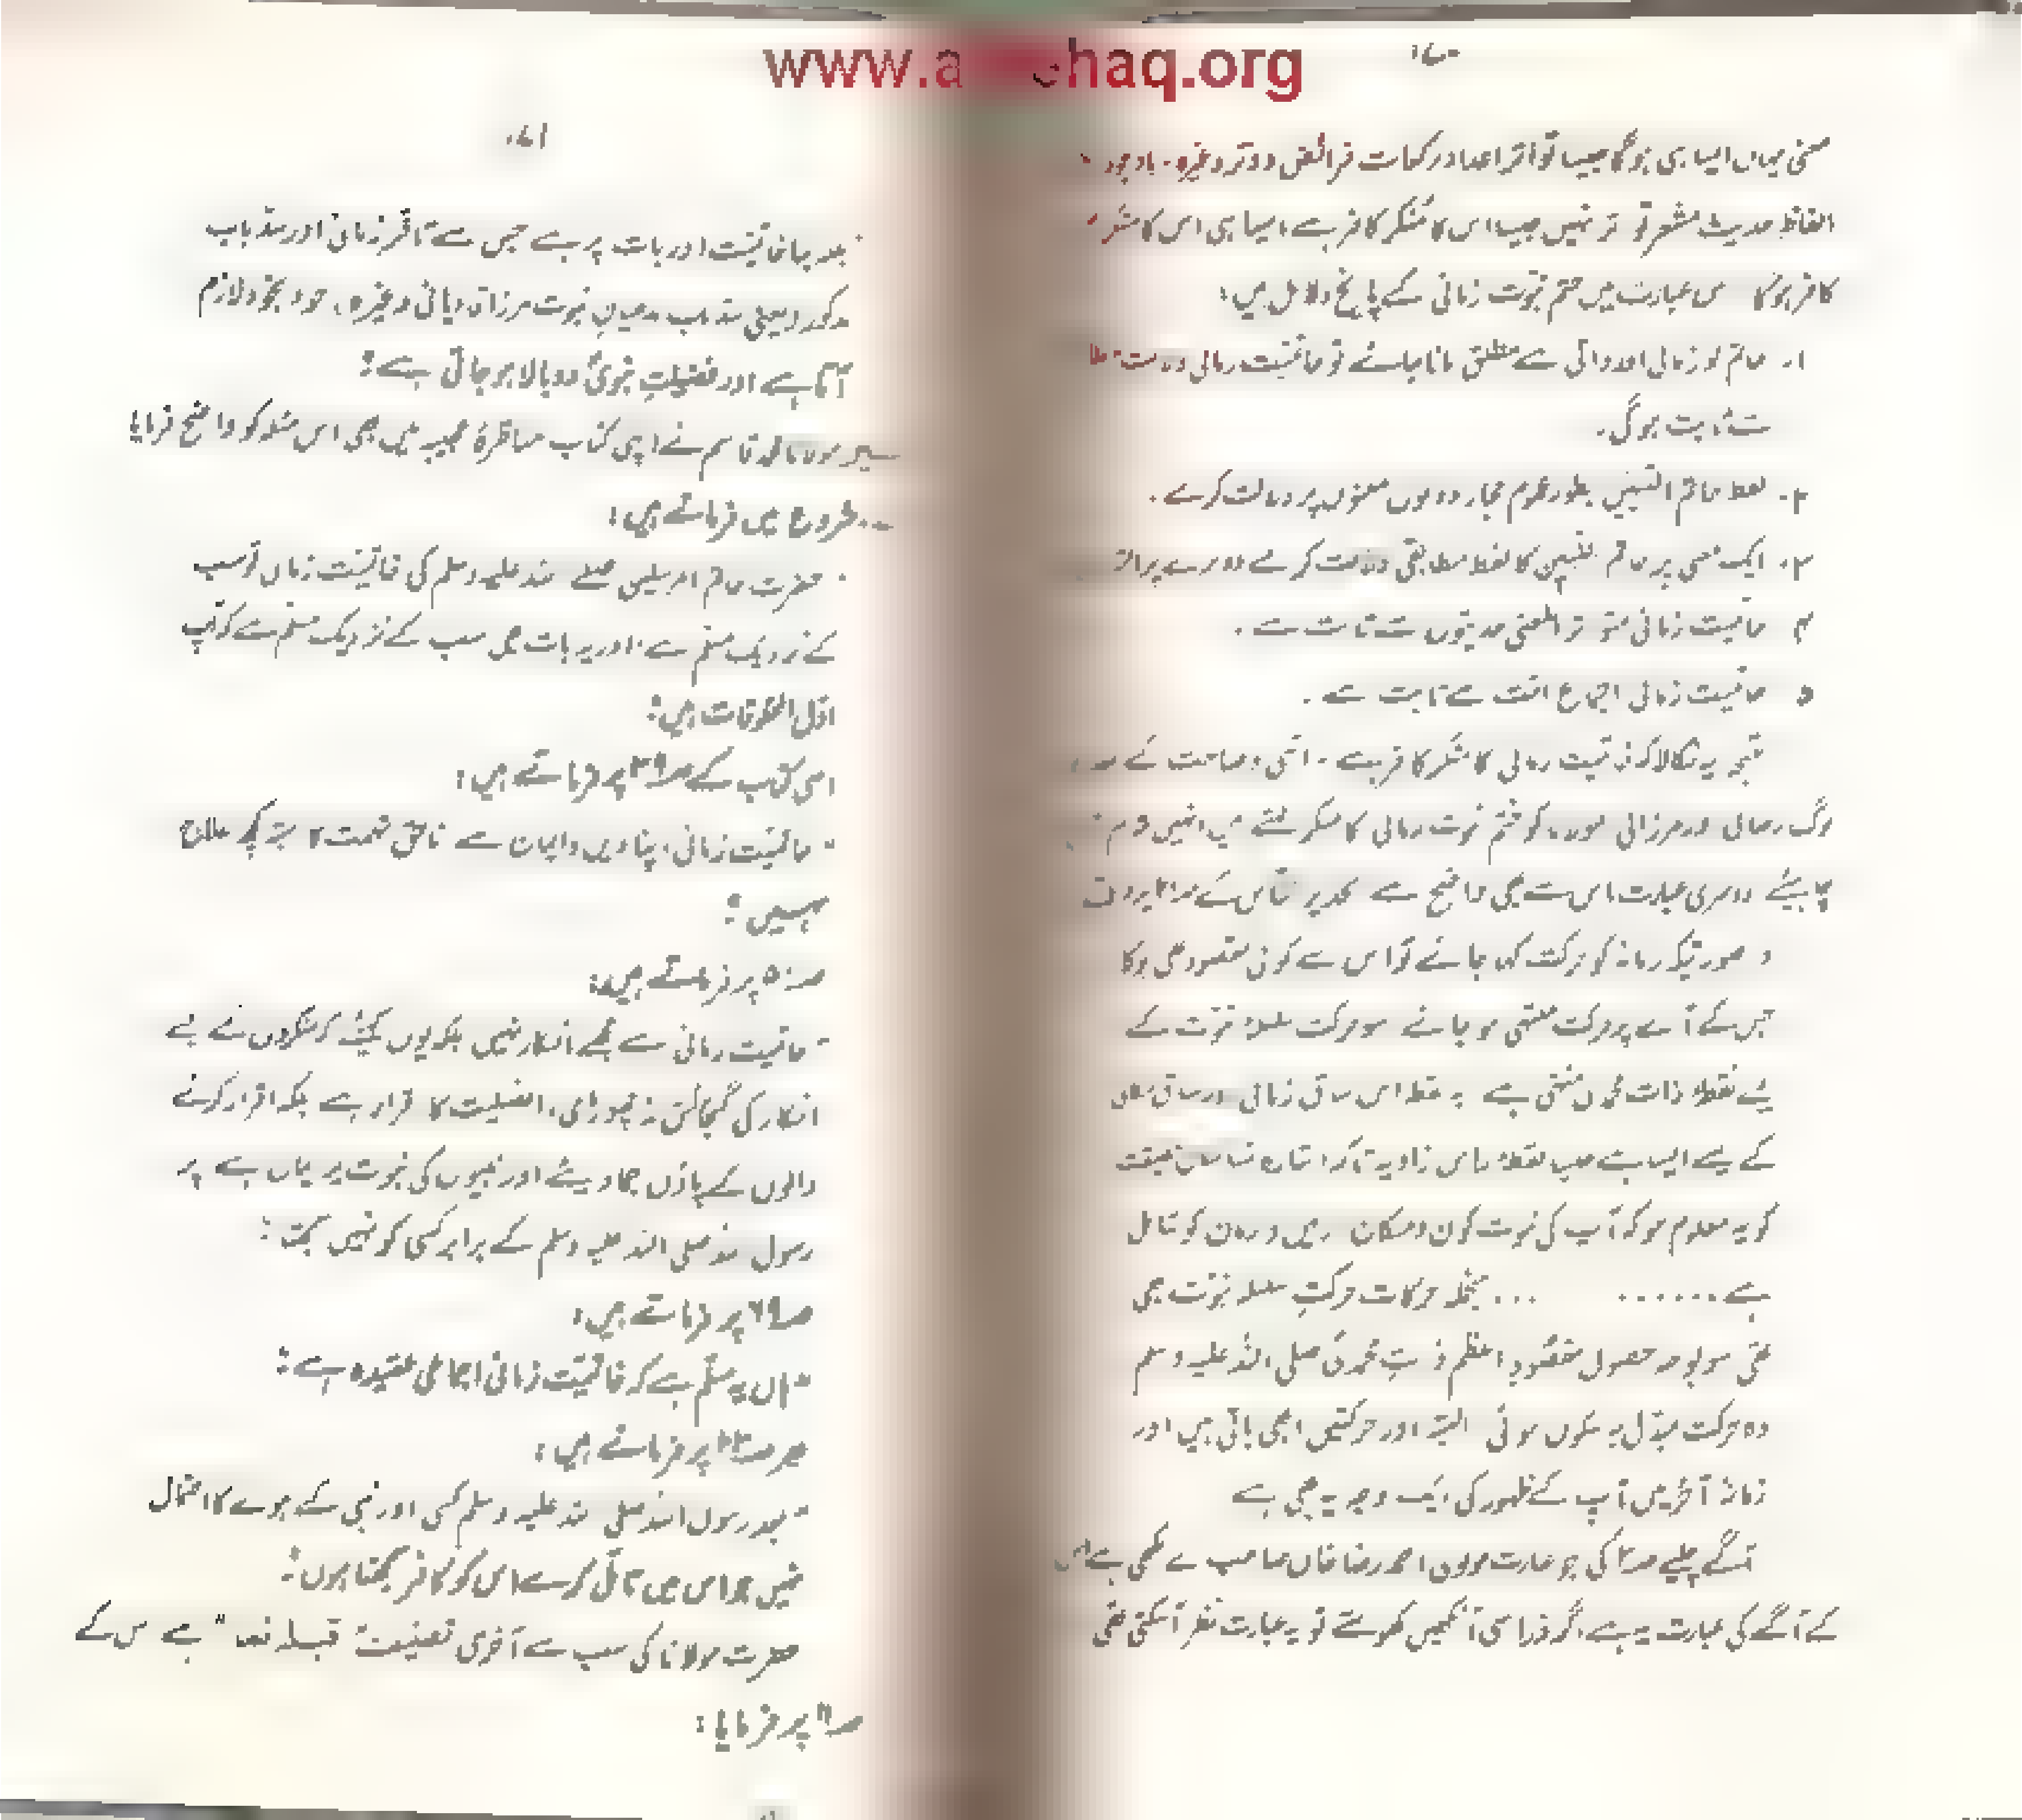 ۱۷۰
معنی یہاں ایسا ہی ہوگا جیسا تواتر اعداد رکعات فرائض و وتر وغیرہ۔ باوجود
الفاظ حدیث مشعر تو تر نہیں جیسا اس کا منکر کافر ہے ایسا ہی اس کا منکر
کافر ہوگا س عبارت میں ختم نبوت زمانی کے پانچ دلائل ہیں:
۱۔ خاتم کو زمانی اور واتی سے مطلق مانا جائے تو خاتمیت زمانی
ثابت ہوگی۔
۲۔ لفظ خاتم النبیین بطور عموم مجاز دونوں معنوں پر دلالت کرے۔
۳۔ ایک معنی پر خاتم النبیین کا لفظ مطابقی دلالت کرے دوسرے پر
۴ خاتمیت زمانی متو تر المعنی حدیثوں سے ثابت ہے۔
۵ خاتمیت زمانی اجماع امت سے ثابت ہے۔
نتیجہ یہ نکالا کہ خاتمیت زمانی کا منکر کافر ہے۔ اتنی وضاحت کے
لوگ اور مرزائی مولانا کو ختم نبوت زمانی کا منکر کہتے ہیں انہیں
چاہیئے دوسری عبارت اس سے بھی واضح ہے تحذیر الناس کے
و صورتیکہ زمانہ کو حرکت کہا جائے تو اس سے کوئی مقصود بھی ہوگا
جس کے آنے پر حرکت منتہی ہو جائے سو حرکت سلسلہ نبوت کے
لیے نقطہ ذات محمدی منتہی ہے یہ نقطہ اس ساق زمانی اور ساق مکانی
کے لیے ایسا ہے جیسے نقطہ راس زاویہ تاکہ اشارہ شناسان حقیقت
کو یہ معلوم ہو کہ آپ کی نبوت کون و مکان زمین و زمان کو شامل
ہے ...... ... منجملہ حرکات حرکتِ سلسلہ نبوت بھی
تھی سو بوجہ حصول مقصودِ اعظم ذاتِ محمدی صلی اللہ علیہ وسلم
وہ حرکت مبدل بہ سکوں ہوئی البتہ اور حرکتیں ابھی باقی ہیں اور
زمانہ آخر میں آپ کے ظہور کی ایک وجہ یہ بھی ہے
آگے چلیے کی جو عبارت مولوی احمد رضا خاں صاحب نے لکھی ہے اس
کے آگے کی عبارت یہ ہے، اگر ذرا سی آنکھیں کھولتے تو یہ عبارت نظر آسکتی تھی
www.a haq.org
۱۷۱
بلکہ بناء خاتمیت اور بات پر ہے جس سے تاخر زمانی اور سد باب
مذکور (یعنی سد باب مدعیانِ نبوت مرزا قادیانی وغیرہ) خود بخود لازم
آتا ہے اور فضیلتِ نبویؐ دوبالا ہو جاتی ہے:
مولانا محمد قاسم نے اپنی کتاب مناظرہ عجیبہ میں بھی اس مسئلہ کو واضح فرمایا
شروع میں فرماتے ہیں:
حضرت خاتم المرسلین صلے اللہ علیہ وسلم کی خاتمیت زمانی تو سب
کے نزدیک مسلم ہے، اور یہ بات بھی سب کے نزدیک مسلم ہے کہ آپ
اوّل المخلوقات ہیں:
اسی کتاب کے صـ۳۹ پر فرماتے ہیں:
"خاتمیت زمانی اپنا دین وایمان ہے ناحق تہمت کا البتہ کچھ علاج
نہیں:
صـ۵۰ پر فرماتے ہیں:
"خاتمیت زمانی سے مجھے انکار نہیں بلکہ یوں کہیئے کہ منکروں کے لیے
انکار کی گنجائش نہ چھوڑی، افضلیت کا اقرار ہے بلکہ اقرار کرنے
والوں کے پاؤں جما دیئے اور نبیوں کی نبوت پر ایمان ہے پر
رسول اللہ صلی اللہ علیہ وسلم کے برابر کسی کو نہیں سمجھتا:
صـ۶۹ پر فرماتے ہیں:
"ہاں یہ مسلّم ہے کہ خاتمیت زمانی اجماعی عقیدہ ہے:
پر فرماتے ہیں:
"بعد رسول اللہ صلی اللہ علیہ وسلم کسی اور نبی کے ہونے کا احتمال
نہیں جو اس میں تامل کرے اس کو کافر سمجھتا ہوں:
حضرت مولانا کی سب سے آخری تصنیف "قبلہ نما" ہے اس کے
صـ۱۱ پر فرمایا: